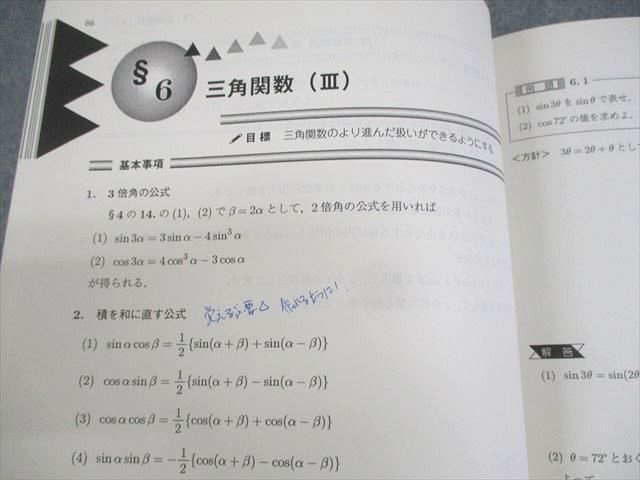 66
§6
三角関数（III）
目標 三角関数のより進んだ扱いができるようにする
基本事項
1. 3倍角の公式
§4の14.の(1)，(2)でβ=2αとして，2倍角の公式を用いれば
(1) sin3α=3sinα−4sin³α
(2) cos3α=4cos³α−3cosα
が得られる．
2. 積を和に直す公式
(1) sinαcosβ=1/2{sin(α+β)+sin(α−β)}
(2) cosαsinβ=1/2{sin(α+β)−sin(α−β)}
(3) cosαcosβ=1/2{cos(α+β)+cos(α−β)}
(4) sinαsinβ=−1/2{cos(α+β)−cos(α−β)}
例題 6.1
(1) sin3θをsinθで表せ．
(2) cos72°の値を求めよ．
<方針> 3θ=2θ+θとし
解答
(1) sin3θ=sin(2θ
(2) θ=72°とおく